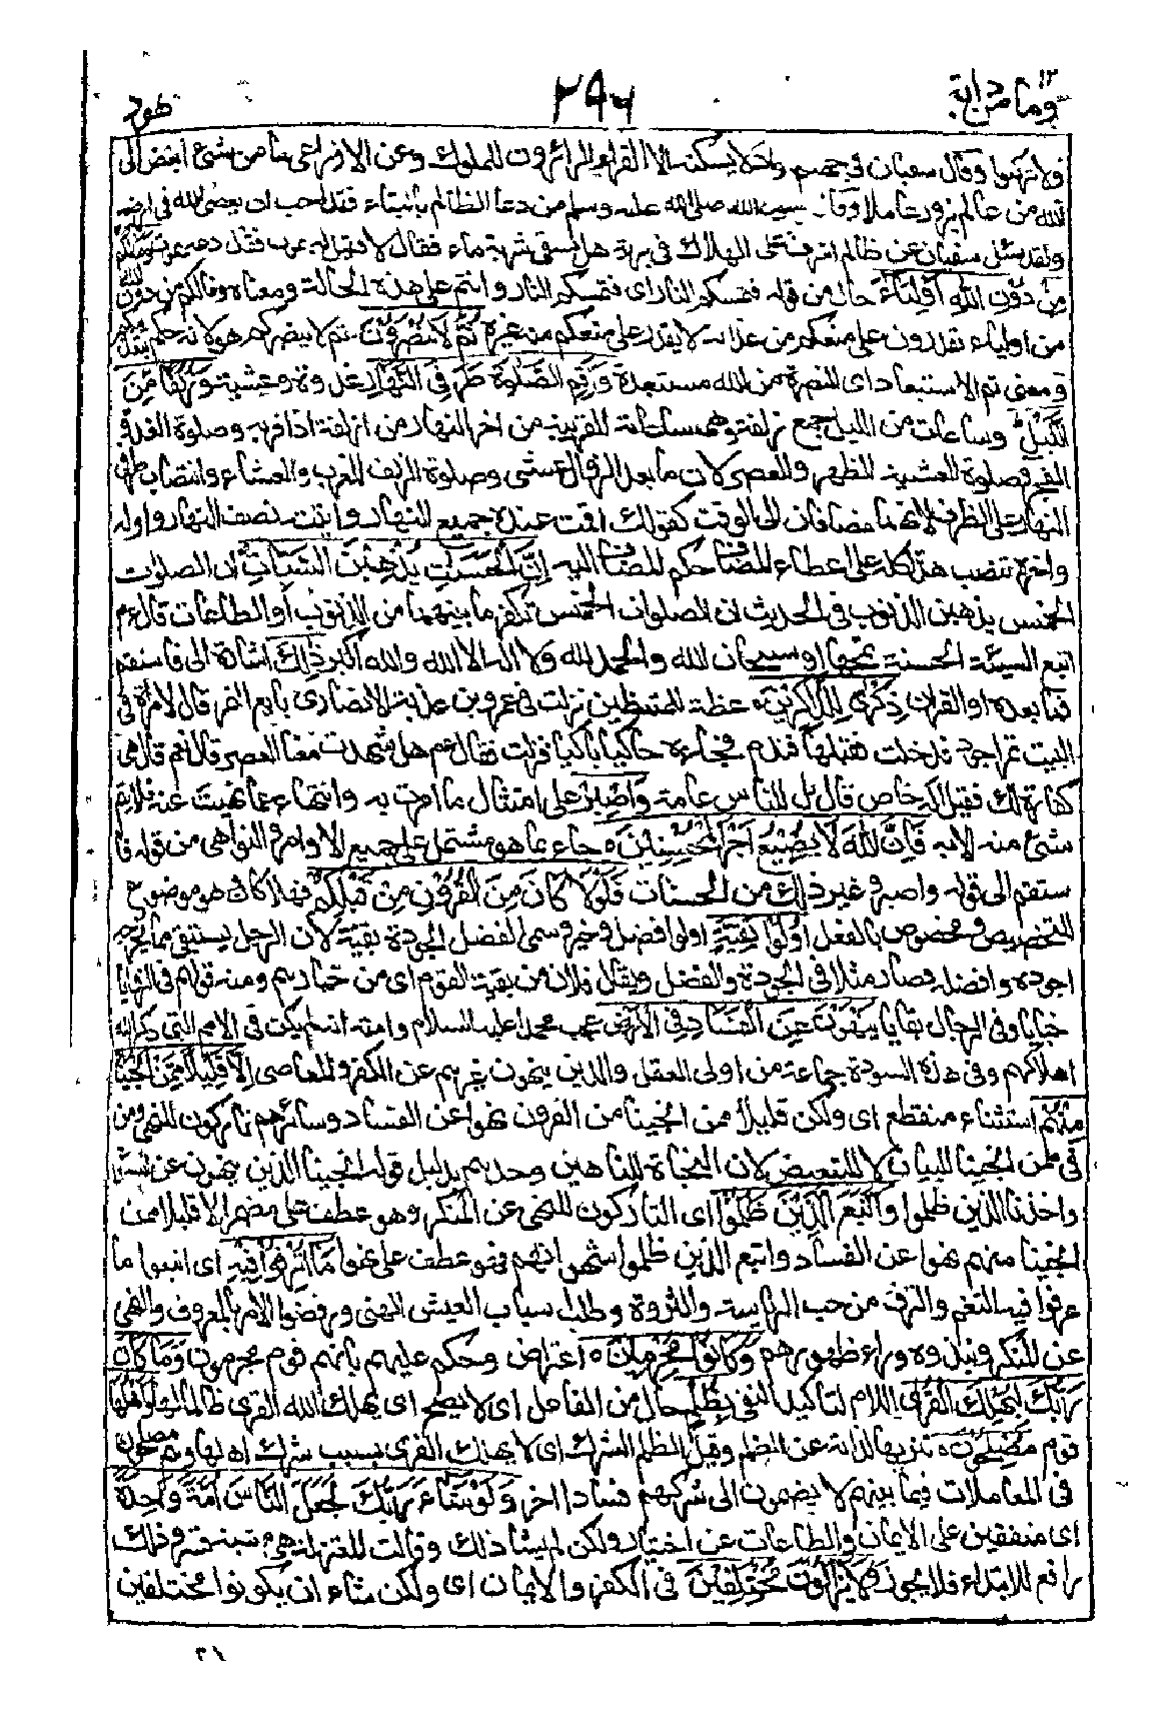 وما من دابة ١٢
٢٩٦
هود
ولا ترهنوا وقال سفيان في جهنم واد لا يسكنه الا القراء الزائرون للملوك وعن الاوزاعى ما من شئ ابغض الى
الله من عالم يزور عاملا وقال رسول الله صلى الله عليه وسلم من دعا لظالم بالبقاء فقد احب ان يعصى الله فى ارضه
ولقد سئل سفيان عن ظالم اشرف على الهلاك فى برية هل يسقى شربة ماء فقال لا فقيل له يموت فقال دعه يموت وما لكم
من دون الله اولياء حال من قوله فتمسكم النار اى فتمسكم النار وانتم على هذه الحالة ومعناه وما لكم من دون الله
من اولياء يقدرون على منعكم من عذابه لا يقدر على منعكم منه غيره ثم لا تنصرون ثم لا ينصركم هو لانه حكم
ومعنى ثم الاستبعاد اى النصرة من الله مستبعدة واقم الصلوة طرفى النهار غدوة وعشية وزلفا من
الليل وساعات من الليل جمع زلفة وهى ساعاته القريبة من اخر النهار من ازلفه اذا قربه وصلوة الغدوة
الفجر وصلوة العشية الظهر والعصر لان ما بعد الزوال عشى وصلوة الزلف المغرب والعشاء وانتصاب طرفى
النهار على الظرف لانهما مضافان الى الوقت كقولك اقمت عنده جميع النهار واتيته نصف النهار واوله
واخره تنصب هذا كله على اعطاء المضاف حكم المضاف اليه ان الحسنات يذهبن السيئات ان الصلوات
الخمس يذهبن الذنوب فى الحديث ان الصلوات الخمس تكفر ما بينها من الذنوب او الطاعات قال عم
اتبع السيئة الحسنة تمحها او سبحان الله والحمد لله ولا اله الا الله والله اكبر ذلك اشارة الى فاستقم
فما بعده او القران ذكرى للذاكرين عظة للمتعظين نزلت فى عمرو بن غزية الانصارى بايع التمر قال لامرأة فى
البيت تمر اجود فدخلت فقبلها فندم فجاءه حاكيا باكيا فنزلت فقال عم هل شهدت معنا العصر قال نعم قال هى
كفارة لك فقيل اله خاص قال بل للناس عامة واصبر على امتثال ما امرت به والانتهاء عما نهيت عنه فلا يتم
شئ منه الا به فان الله لا يضيع اجر المحسنين جاء بما هو مشتمل على جميع الاوامر والنواهى من قوله فا
ستقم الى قوله واصبر وغير ذلك من الحسنات فلولا كان من القرون من قبلكم فهلا كان وهو موضوع
للتحضيض ومخصوص بالفعل اولوا بقية اولوا فضل وخير وسمى الفضل والجودة بقية لان الرجل يستبقى مما يخرجه
اجوده وافضله فصار مثلا فى الجودة والفضل ويقال فلان من بقية القوم اى من خيارهم ومنه قولهم فى الزوايا
خبايا وفى الرجال بقايا ينهون عن الفساد فى الارض عجب محمدا عليه السلام وامته ان لم يكن فى الامم التى ذكر الله
اهلاكهم فى هذه السورة جماعة من اولى العقل والدين ينهون غيرهم عن الكفر والمعاصى الا قليلا ممن انجينا
منهم استثناء منقطع اى ولكن قليلا ممن انجينا من القرون نهوا عن الفساد وسائرهم تاركون للنهى ومن
فى ممن انجينا للبيان لا للتبعيض لان النجاة للناهين وحدهم بدليل قوله انجينا الذين ينهون عن السوء
واخذنا الذين ظلموا واتبع الذين ظلموا اى التاركون للنهى عن المنكر وهو عطف على مضمر اى الا قليلا ممن
انجينا منهم نهوا عن الفساد واتبع الذين ظلموا شهواتهم فهو عطف على نهوا ما اترفوا فيه اى اتبعوا ما
عرفوا فيه التنعم والترف من حب الرياسة والثروة وطلب اسباب العيش الهنى ورفضوا الامر بالمعروف والنهى
عن المنكر ونبذوه وراء ظهورهم وكانوا مجرمين اعتراض وحكم عليهم بانهم قوم مجرمون وما كان
ربك ليهلك القرى اللام لتاكيد النفى بظلم حال من الفاعل اى لا يصح ان يهلك الله القرى ظالما لها واهلها
قوم مصلحون تنزيها لذاته عن الظلم وقيل الظلم الشرك اى لا يهلك القرى بسبب شرك اهلها وهم مصلحون
فى المعاملات فيما بينهم لا يضمون الى شركهم فسادا اخر ولو شاء ربك لجعل الناس امة واحدة
اى متفقين على الايمان والطاعات عن اختيار ولكن لم يشأ ذلك وقالت المعتزلة هى مشيئة قسر وذلك
رافع للابتلاء فلا يجوز ولا يزالون مختلفين فى الكفر والايمان اى ولكن شاء ان يكونوا مختلفين